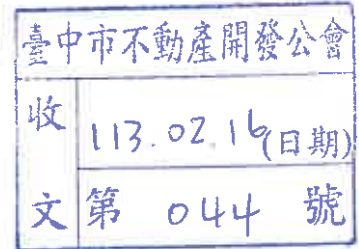 臺中市不動產開發公會
收 113.02.16(日期)
文 第 044 號